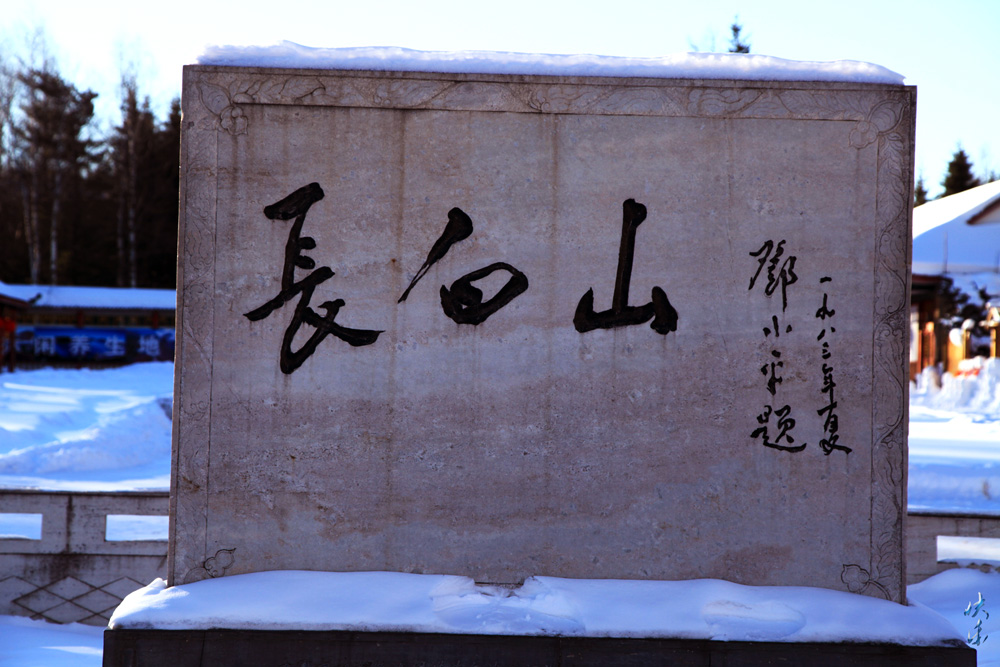 長白山
鄧小平題
一九八三年夏
闲养生地